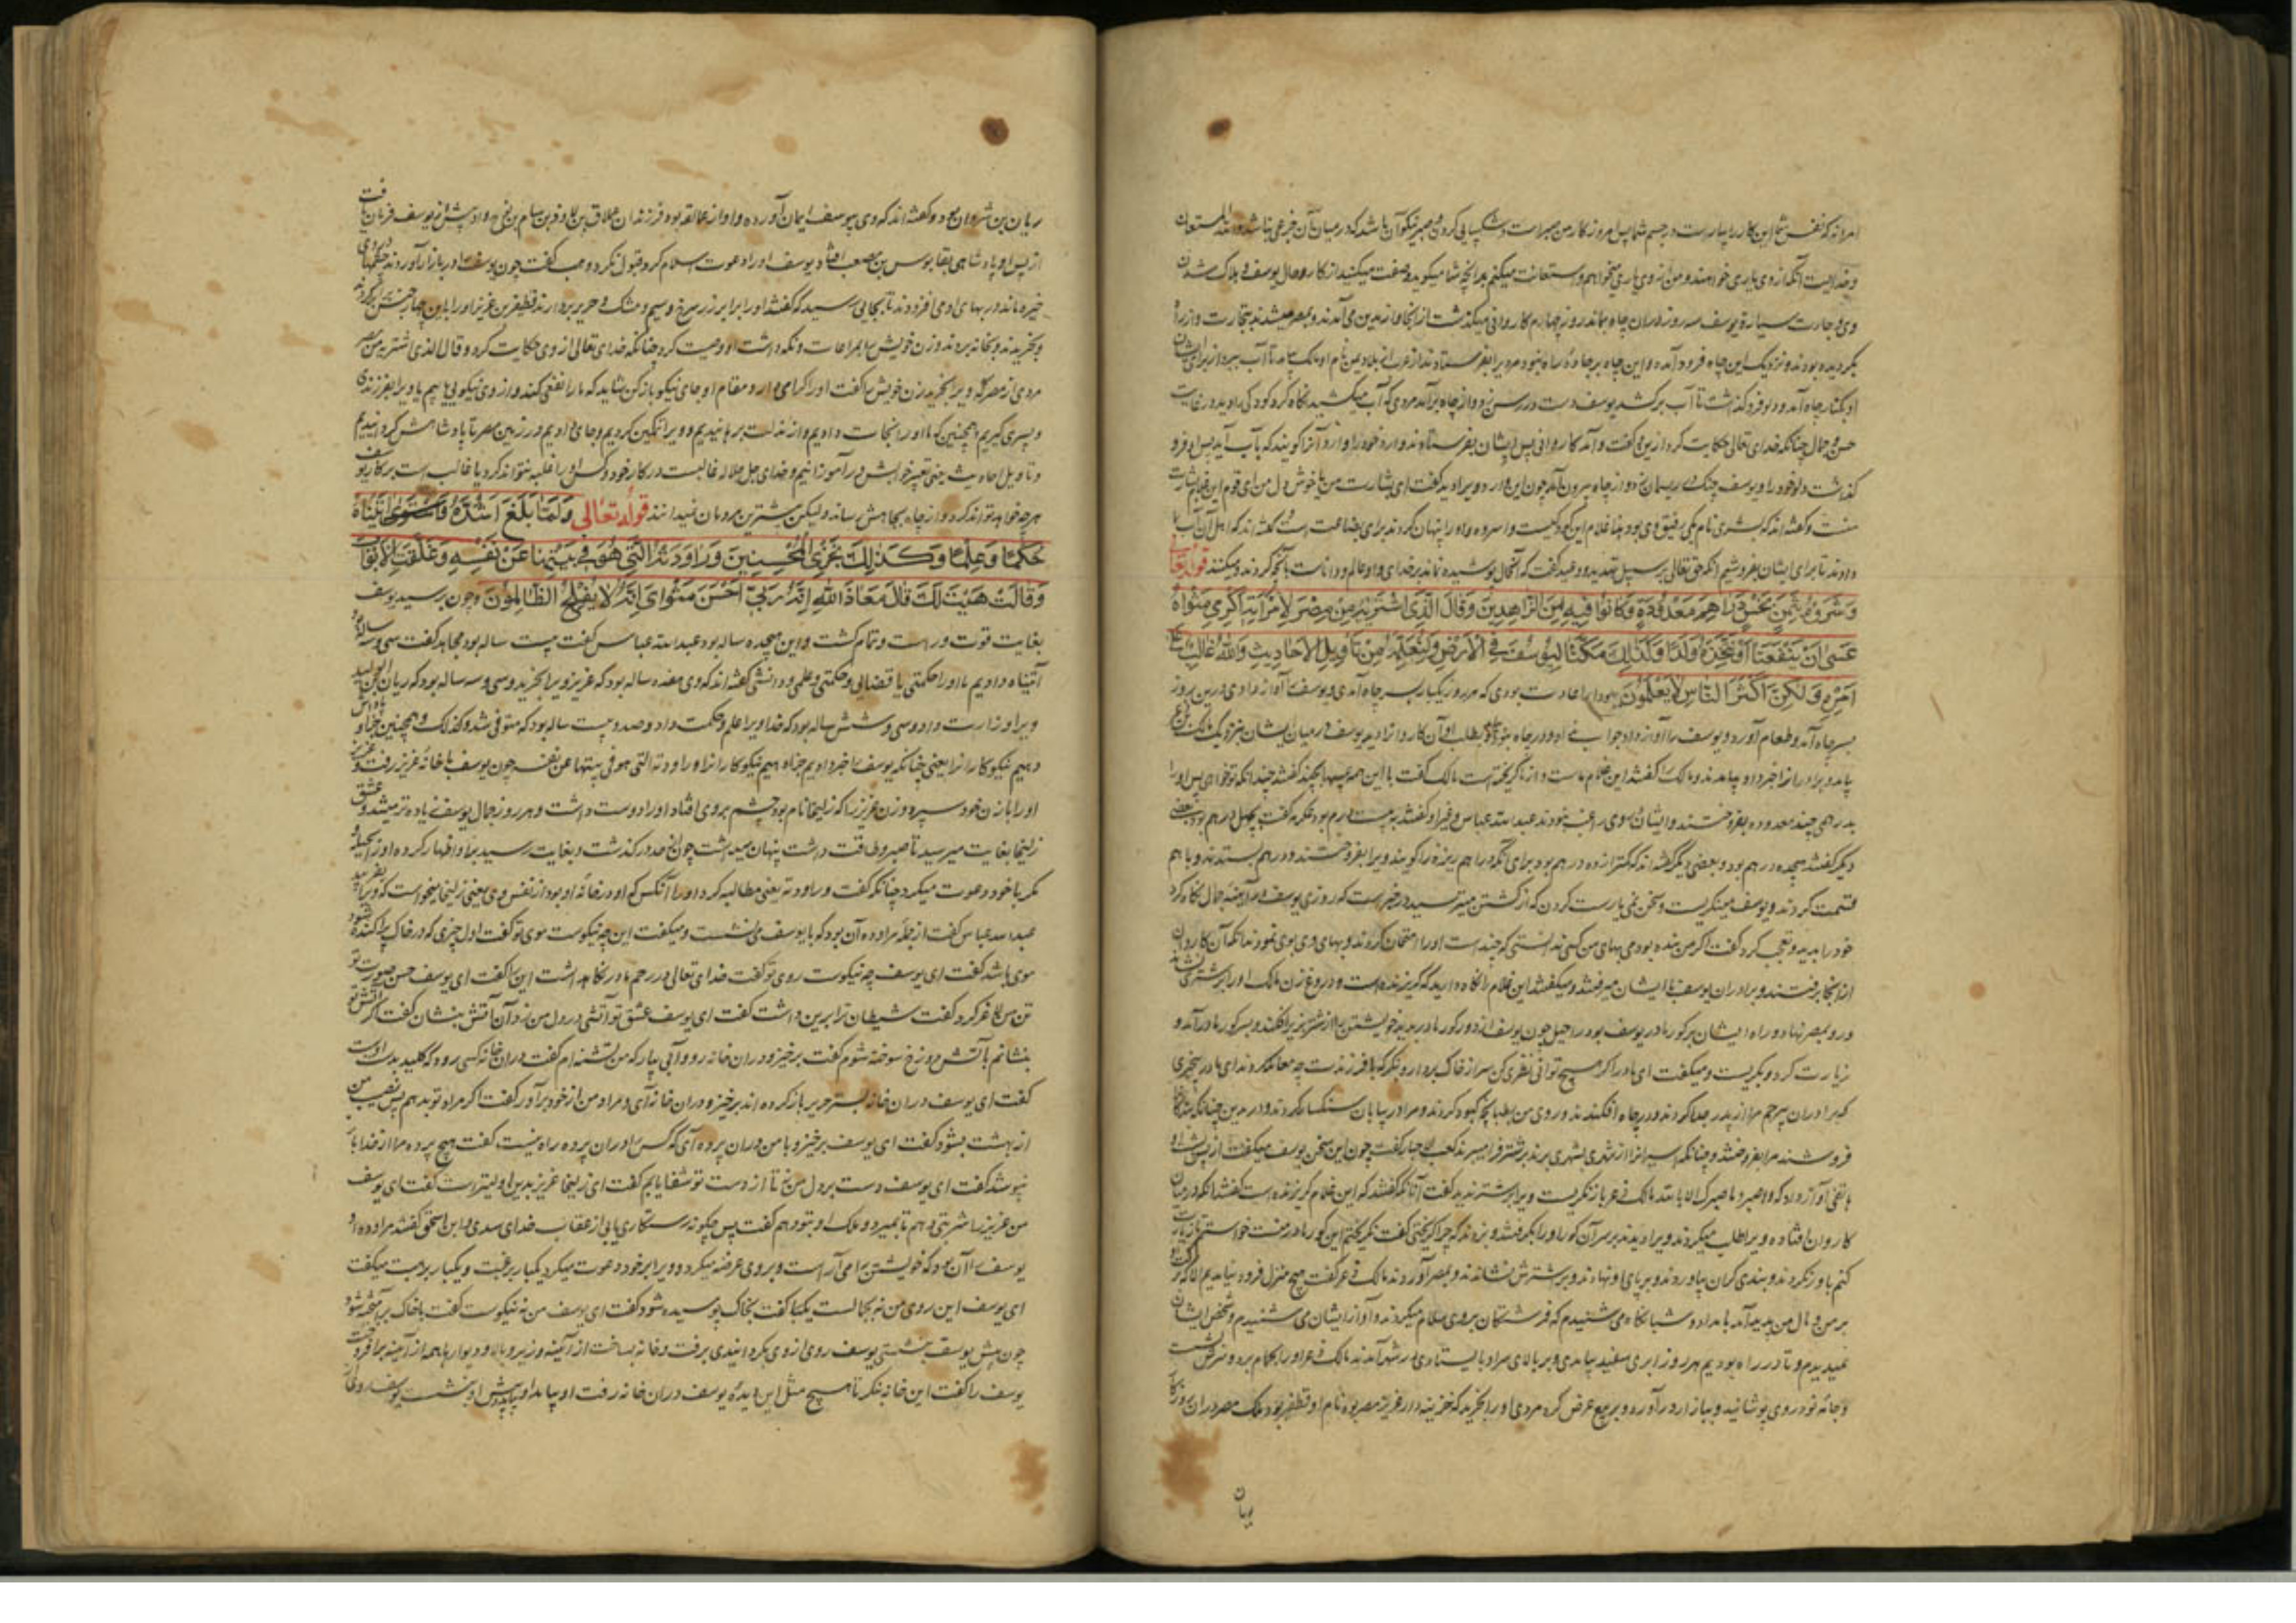 امرا نه که نفس شما این کار را بیاراست در چشم شما پس امروز کار من صبر است و شکیبایی کردن و صبر نیکو آن باشد که در میان آن جزعی نباشد والله المستعان
و خدای است آنکه از وی یاری خواهند و من از وی یاری میخواهم و استعانت میکنم بر آنچه شما میگوئید و صفت میکنید از کار و حال یوسف و هلاک شدن
وی و جاءت سیارة یوسف سه روز در آن چاه بماند روز چهارم کاروانی میگذشت از آنجا و از مدین می آمدند و بمصر میشدند بتجارت و از راه
بگردیده بودند و نزدیک این چاه فرود آمده و این چاه بر جاده راه نبود مردی را بفرستادند از عرب نام او مالک بیامد تا آب ببرد از برای ایشان
او بکنار چاه آمد و دلو فرو گذاشت تا آب برکشد یوسف دست در رسن زد و از چاه برآمد مردی که آب میکشید نگاه کرد کودکی را دید در غایت
حسن و جمال چنانکه خدای تعالی حکایت کرد ازین و گفت و آمد کاروانی پس ایشان بفرستادند وارد خود را و وارد آنرا گویند که بآب آید پس او فرو
گذاشت دلو خود را و یوسف چنگ در ریسمان زد و از چاه بیرون آمد چون این وارد ویرا دید گفت ای بشارت من یا خوش دل من ای قوم این غلام بشارت
منست و گفته اند که بشری نام یکی رفیق وی بود هذا غلام این کودکیست واسروه و او را پنهان کردند برای بضاعت است گفته اند که اهل آن آب
دادند تا برای ایشان بفروشیم آنکه حق تعالی بر سبیل تهدید و وعید گفت که آنحال پوشیده نماند بر خدای و او عالم و داناست بآنچه کردند و میکنند قوله تعالی
وَشَرَوْهُ بِثَمَنٍ بَخْسٍ دَرَاهِمَ مَعْدُودَةٍ وَكَانُوا فِيهِ مِنَ الزَّاهِدِينَ وَقَالَ الَّذِي اشْتَرَيهُ مِنْ مِصْرَ لِامْرَأَتِهِ أَكْرِمِي مَثْوَاهُ
عَسَى أَنْ يَنْفَعَنَا أَوْ نَتَّخِذَهُ وَلَدًا وَكَذَلِكَ مَكَّنَّا لِيُوسُفَ فِي الْأَرْضِ وَلِنُعَلِّمَهُ مِنْ تَأْوِيلِ الْأَحَادِيثِ وَاللهُ غَالِبٌ عَلَى
أَمْرِهِ وَلَكِنَّ أَكْثَرَ النَّاسِ لَا يَعْلَمُونَ یهودا را عادت بودی که هر روز یکبار بسر چاه آمدی و یوسف را آواز دادی درین روز
بسر چاه آمد و طعام آورد و یوسف را آواز داد جواب نداد و در چاه نبود بطلب او آن کاروان را دید یوسف در میان ایشان بنزدیک مالک
بیامد و برادران را خبر داد و بیامدند و مالک را گفتند این غلام ماست و از ما گریخته است مالک گفت با این همه عیبها بچند گفتند چندانکه تو خواهی پس او را
بدرهمی چند معدوده بفروختند و ایشان بسوی راغب نبودند عبدالله عباس و غیر او گفتند به بیست درم بود عکرمه گفت بچهل درهم بود بعضی
دیگر گفتند هیجده درهم بود و بعضی دیگر گفته اند که کمتر از ده درهم بود برای آنکه دراهم ریزه را گویند ویرا بفروختند و درهم بستدند و باهم
قسمت کردند و یوسف مینگریست و سخن نمی یارست کردن که از کشتن میترسید در خبر است که روزی یوسف در آینه جمال نگاه کرد
خود را بدید و تعجب کرد گفت اگر من بنده بودمی بهای من کسی ندانستی که چند است او را امتحان کردند و بهای وی بوی نمودند آنکه آن کاروان
از آنجا برفتند و برادران یوسف با ایشان میرفتند و میگفتند این غلام را نگاه دارید که گریزنده است و دروغ زن مالک او را بر شتری نشاند
و رو بمصر نهاد و راه ایشان بر گور مادر یوسف بود راحیل چون یوسف از دور گور مادر بدید خویشتن را از شتر بزیر افکند و بسر گور مادر آمد و
زیارت کرد و بگریست و میگفت ای مادر اگر هیچ توانی نظری کن سر از خاک بردار و بنگر که با فرزندت چه معامله کردند ای مادر بیخبری
که برادران بیرحم مرا از پدر جدا کردند و در چاه افکندند و روی من بطپانچه کبود کردند و مرا در بیابان سنگسار کردند و در بدین چنانکه بندگان
فروشند مرا بفروختند و چنانکه اسیران را از شهری بشهری برند بر شتر فرا میبرند کعب الاحبار گفت چون این سخن یوسف میگفت از پس او
هاتفی آواز داد که واصبر و ما صبرک الا بالله مالک ذعر باز نگریست ویرا بر شتر ندید گفت آنانکه گفتند که این غلام گریزنده است گفتند آنکه در میان
کاروان افتاده ویرا طلب میکردند ویرا دیدند بر سر آن گور او را بگرفتند و بزدند که چرا گریختی گفت نگریختم این گور مادر منست خواستم زیارت
کنم باور نکردند و بندی گران بیاوردند و بر پای او نهادند و بر شترش نشاندند و بمصر آوردند مالک ذعر گفت هیچ منزل فرود نیامدیم الا که اثر
بر من و مال من پدید آمد بامداد و شبانگاه می شنیدم که فرشتگان بر وی سلام میکردند و آواز ایشان می شنیدم و شخص ایشان
نمیدیدم و تا در راه بودیم هر روز ابری سفید بیامدی و بر بالای سر او بایستادی در شهر آمدند مالک ذعر او را بحمام برد و سرش شست
و جامه نو در وی پوشانید و ببازار در آورد و بر بیع عرض کرد مردی او را بخرید که خزینه دار عزیز مصر بود نام او قطفیر بود ملک مصر در آن روزگار
ریان
ریان بن شروان بود و گفته اند که وی بیوسف ایمان آورده و او از عمالقه بود فرزندان عملاق بن لاوذ بن سام بن نوح و او پیش از یوسف فرمان یافت
از پس او پادشاهی بقابوس بن مصعب افتاد یوسف او را دعوت اسلام کرد قبول نکرد وهب گفت چون یوسف را در بازار آوردند
خیره ماند در بهای او می افزودند تا بجایی رسید که گفتند او را برابر زر سرخ و سیم و مشک و حریر بردارند قطفیر بن عزیز او را باین چهار جنس
بخریدند و بخانه بردند و زن خویش را بمراعات و نگه داشت او وصیت کرد چنانکه خدای تعالی از وی حکایت کرد و قال الذی اشتریه من مصر
مردی از مصر که ویرا بخرید زن خویش را گفت او را گرامی دار و مقام او جای نیکو باز کن شاید که ما را نفعی کند و از وی نیکویی یابیم یا ویرا بفرزندی
و پسری گیریم و همچنین که ما او را نجات دادیم و از مذلت برهانیدیم و ویرا تمکین کردیم و جای دادیم در زمین مصر تا پادشاهش گردانیدیم
و تاویل احادیث یعنی تعبیر خوابش در آموزانیم و خدای جل جلاله غالبست در کار خود و کس او را غلبه نتواند کرد یا غالب است بر کار یوسف
هر چه خواهد تواند کرد و از چاه بجاهش رساند ولیکن بیشترین مردمان نمیدانند قوله تعالی وَلَمَّا بَلَغَ أَشُدَّهُ وَاسْتَوَى آتَيْنَاهُ
حُكْمًا وَعِلْمًا وَكَذَلِكَ نَجْزِي الْمُحْسِنِينَ وَرَاوَدَتْهُ الَّتِي هُوَ فِي بَيْتِهَا عَنْ نَفْسِهِ وَغَلَّقَتِ الْأَبْوَابَ
وَقَالَتْ هَيْتَ لَكَ قَالَ مَعَاذَ اللهِ إِنَّهُ رَبِّي أَحْسَنَ مَثْوَايَ إِنَّهُ لَا يُفْلِحُ الظَّالِمُونَ و چون برسید یوسف
بغایت قوت و راست و تمام گشت و این هیجده ساله بود عبدالله عباس گفت بیست ساله بود مجاهد گفت سی و سه ساله بود
آتیناه دادیم ما او را حکمتی یا قضایی و حکمتی و علمی و دانشی گفته اند که وی هفده ساله بود که عزیز ویرا بخرید و سی و سه ساله بود که ریان بن الولید
ویرا وزارت داد و سی و شش ساله بود که خدا ویرا علم و حکمت داد و صد و بیست ساله بود که متوفی شد و کذلک و همچنین جزا و پاداش
دهیم نیکوکاران را یعنی چنانکه یوسف را جزا دادیم جزاء دهیم نیکوکاران را و راودته التی هو فی بیتها عن نفسه چون یوسف با خانه عزیز رفت و عزیز
او را با زن خود سپرد و زن عزیز را که زلیخا نام بود چشم بر وی افتاد او را دوست داشت و هر روز جمال یوسف زیاده تر میشد و عشق
زلیخا بغایت میرسید تا صبر و طاقت داشت پنهان میداشت چون از حد در گذشت و بغایت رسید بر او اظهار کرد و او را بحیله و
مکر با خود دعوت میکرد چنانکه گفت و راودته یعنی مطالبه کرد او را آنکس که او در خانه او بود از نفس وی یعنی زلیخا میخواست که ویرا بفریبد
عبدالله عباس گفت از جمله مراوده آن بود که با یوسف می نشست و میگفت این چه نیکوست موی تو گفت اول چیزی که در خاک پراکنده شود
موی باشد گفت ای یوسف چه نیکوست روی تو گفت خدای تعالی در رحم مادر نگاهداشت این را گفت ای یوسف حسن صورت تو
تن من لاغر کرد گفت شیطان ترا برین داشت گفت ای یوسف عشق تو آتشی در دل من زد آن آتش بنشان گفت اگر آتش تو
بنشانم بآتش دوزخ سوخته شوم گفت برخیز و در آن خانه رو و آبی بیار که من تشنه ام گفت در آن خانه کسی رود که کلید بدست اوست
گفت ای یوسف در آن خانه بستر حریر باز کرده اند برخیز و در آن خانه آی و مراد من از خود برآور گفت اگر مراد تو بدهم پس نصیب من
از بهشت بشود گفت ای یوسف برخیز و با من در آن پرده آی که کس را در آن پرده راه نیست گفت هیچ پرده مرا از خدا باز
نپوشد گفت ای یوسف دست بر دل من نه تا از دست تو شفا یابم گفت ای زلیخا عزیز بدین اولیتر است گفت ای یوسف
من عزیز را شربتی دهم تا بمیرد و ملک او بتو دهم گفت پس چگونه رستگاری یابی از عقاب خدای سدی و ابن اسحق گفتند مراوده او
یوسف را آن بود که خویشتن را می آراست و بر وی عرضه میکرد و ویرا بر خود دعوت میکرد یکبار برغبت و یکبار برهبت میگفت
ای یوسف این روی من نه بجا لست یکتا گفت بخاک پوسیده شود گفت ای یوسف من نه نیکوست گفت باخاک بر آمیخته شود
چون پیش یوسف بنشستی یوسف روی از وی بگردانیدی برفت و خانه بساخت از آبگینه و زیر و بالا و دیوارها همه از آبگینه برافروخت
یوسف را گفت این خانه بنگر تا هیچ مثل این دیده یوسف در آن خانه رفت او بیامد و پیش او بنشست یوسف روی از